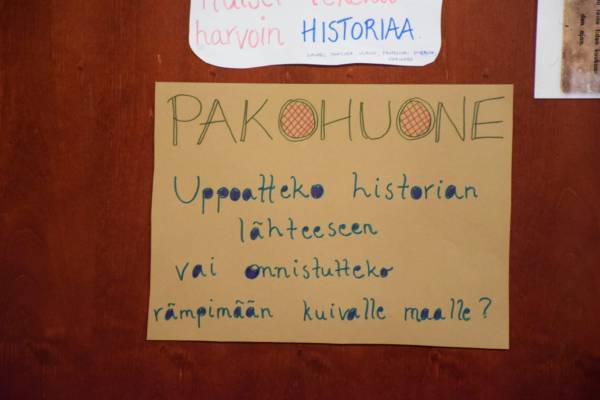 harvoin HISTORIAA.
PAKOHUONE
Uppoatteko historian
lähteeseen
vai onnistutteko
rämpimään kuivalle maalle?